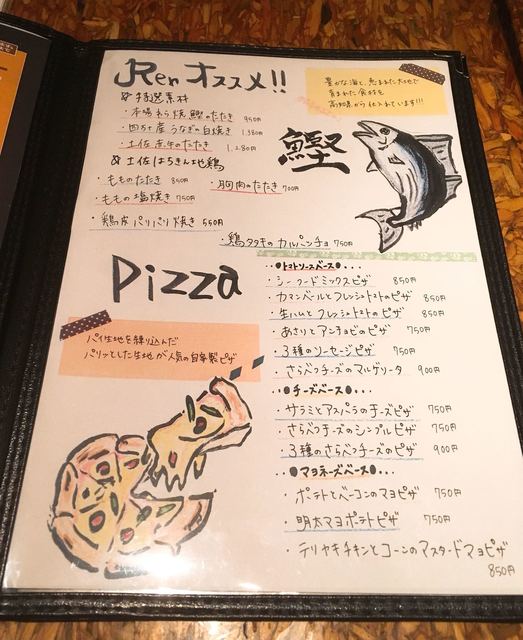 Ren オススメ!!
豊かな海と、恵まれた大地で
育まれた食材を
高知県から仕入れています!!!
特選素材
・本場わら焼 鰹のたたき 950円
・四万十産うなぎの白焼き 1,380円
・土佐赤牛のたたき 1,280円
鰹
土佐はちきん地鶏
・もものたたき 850円
・胸肉のたたき 700円
・ももの塩焼き 750円
・鶏皮パリパリ焼き 550円
・鶏タタキのカルパッチョ 750円
Pizza
パイ生地を練り込んだ
パリッとした生地が人気の自家製ピザ
●トマトソースベース●
・シーフードミックスピザ 850円
・カマンベールとフレッシュトマトのピザ 850円
・生ハムとフレッシュトマトのピザ 850円
・あさりとアンチョビのピザ 750円
・3種のソーセージピザ 750円
・さらべつチーズのマルゲリータ 900円
●チーズベース●
・サラミとアスパラのチーズピザ 750円
・さらべつチーズのシンプルピザ 750円
・3種のさらべつチーズのピザ 900円
●マヨネーズベース●
・ポテトとベーコンのマヨピザ 750円
・明太マヨポテトピザ 750円
・テリヤキチキンとコーンのマスタードマヨピザ
850円